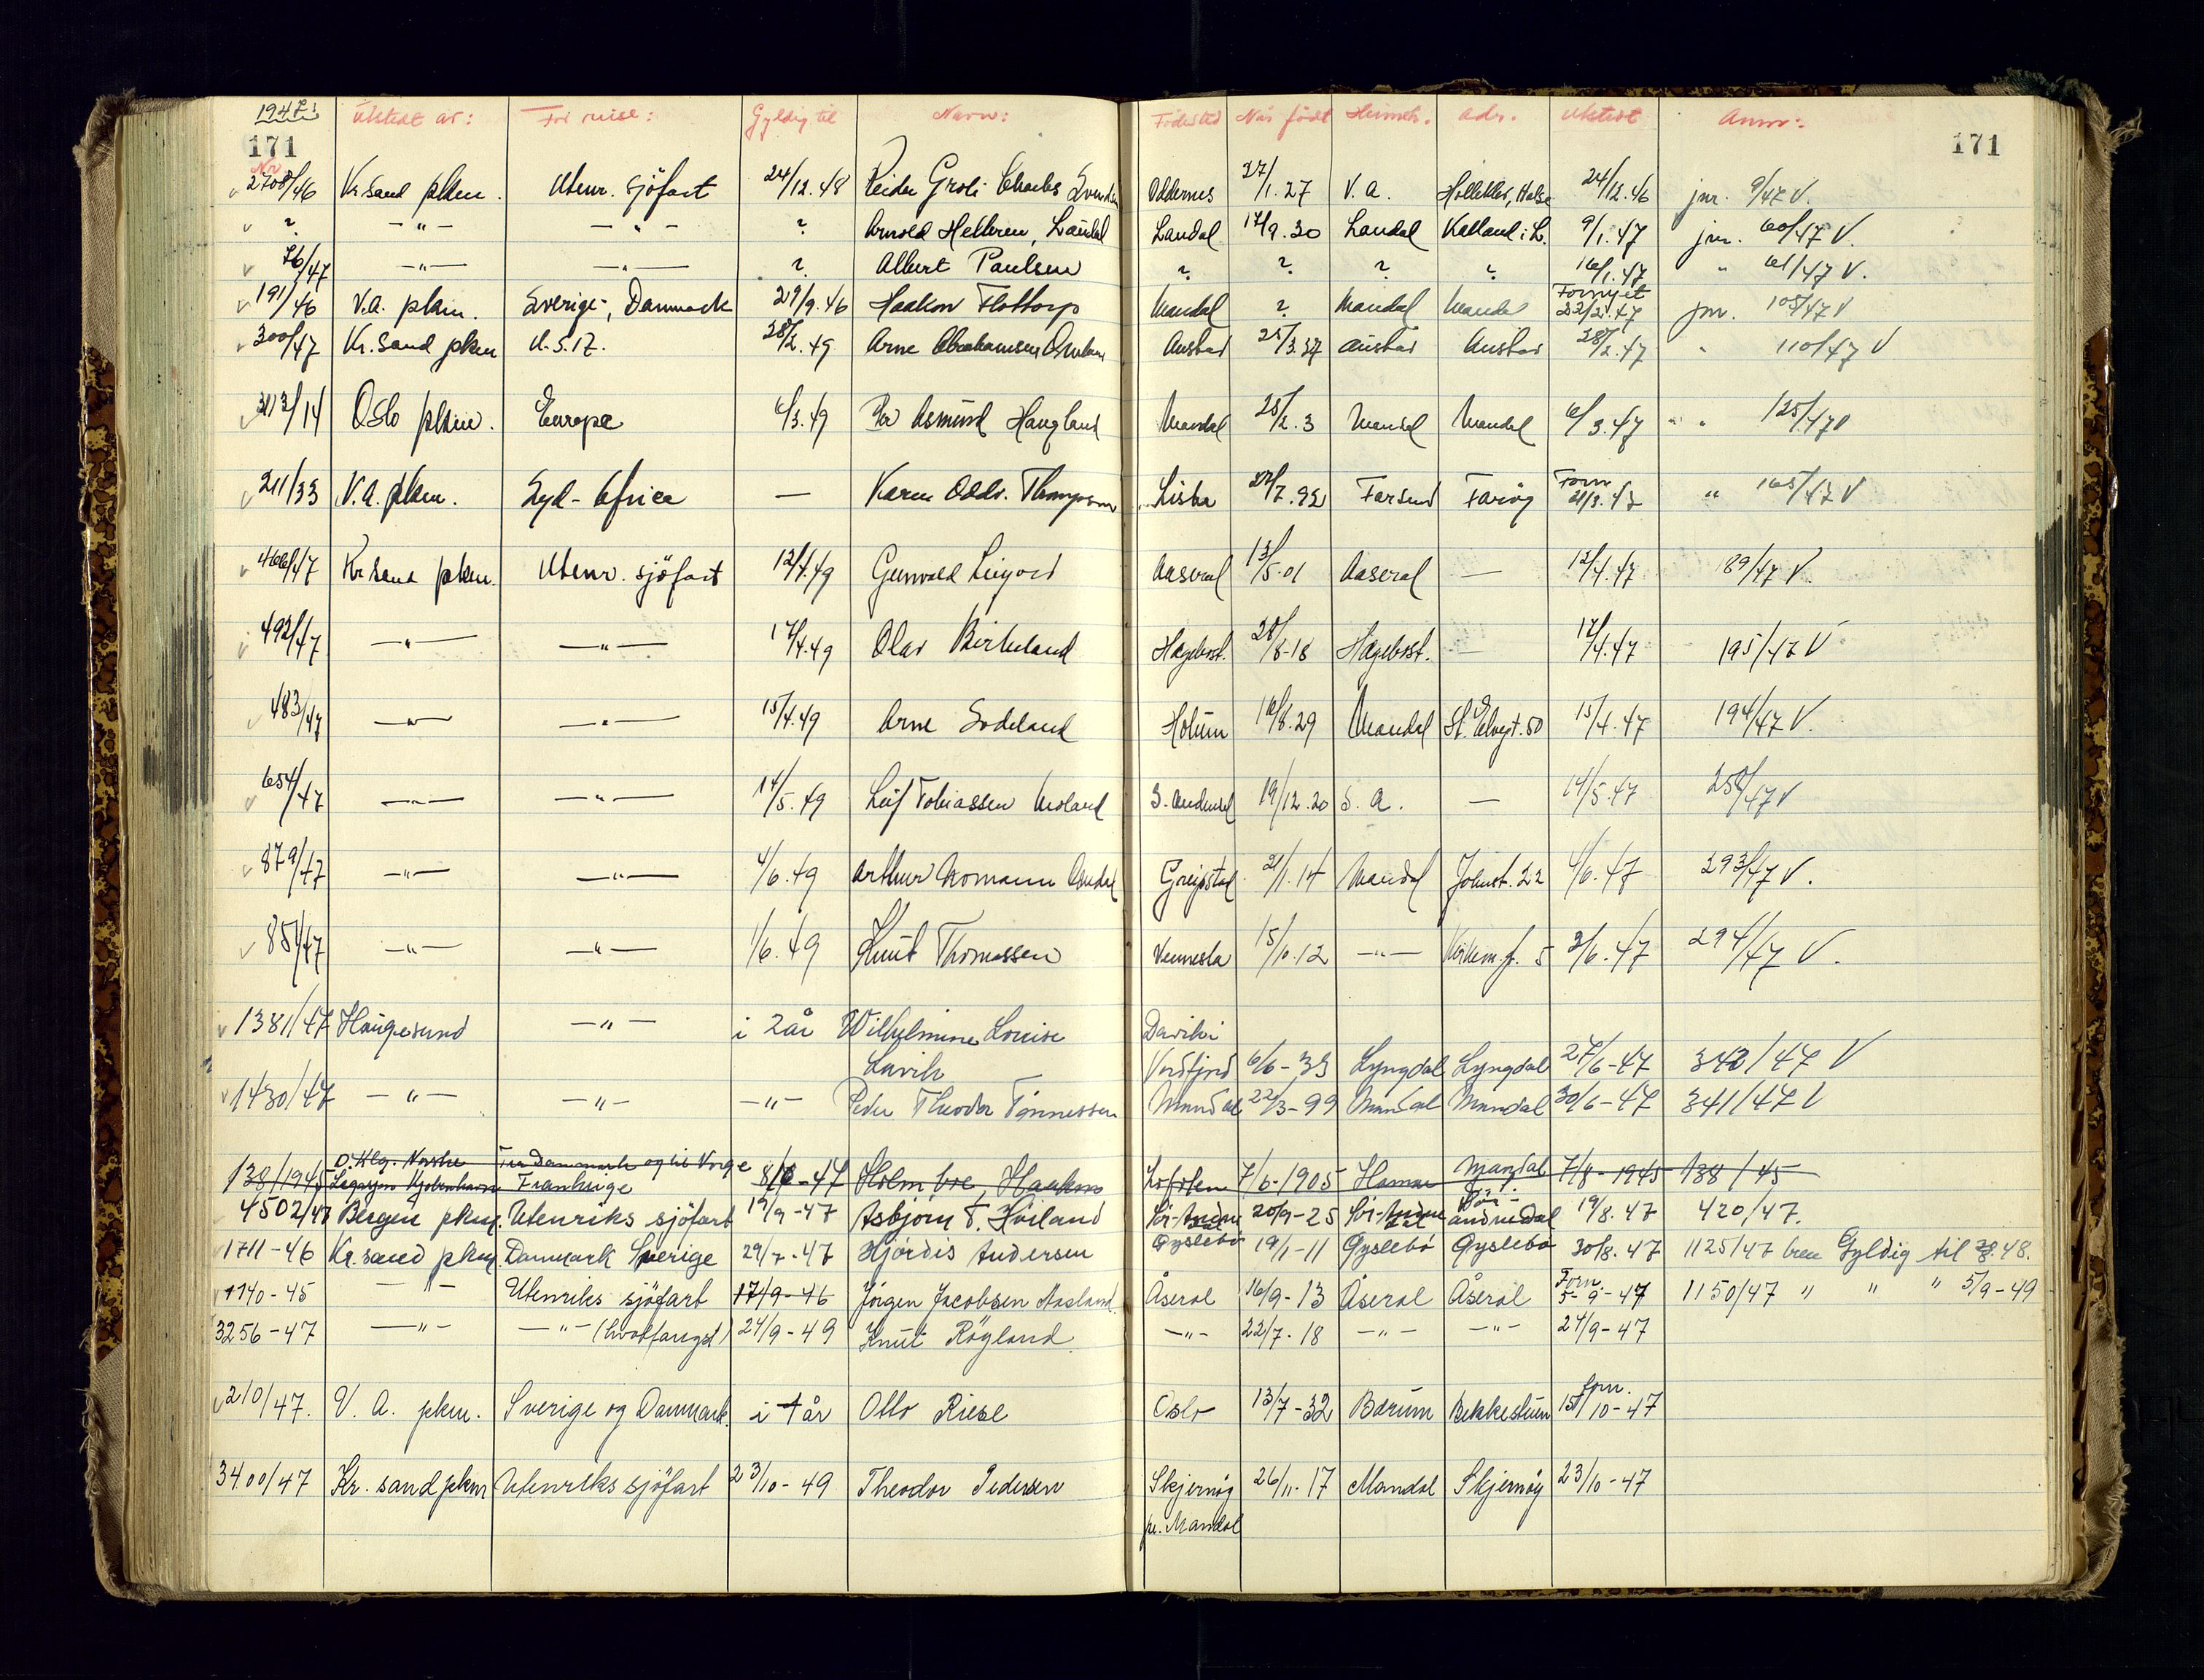 1947:
171 171
Nr Utstedt av: For reise: Gyldig til Navn: Fødested Når født Heimch. Adr. Utstedt Anm:
2708/46 Kr.sand pkm. Utenr. sjöfart 24/12.48 Reidar Charles Oddernes 27/1.27 V.A. Halse 24/12.46 jnr. 9/47 V.
? -"- -"- ? Arnold Landal 17/9.30 Landal i L. 9/1.47 jnr. 60/47 V.
76/47 -"- -"- ? Albert Paulsen ? ? ? ? 16/1.47 " 61/47 V.
191/46 V.A. pkm. Sverige, Danmark 29/9.46 Haakon Flottorp Mandal ? Mandal Mandal Fornyet 22/2.47 jnr. 105/47 V
300/47 Kr.sand pkm U.S.A. 28/2.49 Arne Abrahamsen Austad 25/3.27 Austad Austad 28/2.47 " 110/47 V
Oslo pkm. Europa 6/3.49 Per Asmund Haugland Mandal 25/2.3 Mandal Mandal 6/3.47 " " 125/47 V
211/33 V.A. pkm. Syd-Africa — Karen Thompson Lista 7.92 Farsund Farøy Forn 21/3.47 " 165/47 V
466/47 Kr.sand pkm. Utenr. sjöfart 12/4.49 Gunvald Ljigord Aaseral 13/5.01 Aaseral — 12/4.47 89/47 V.
492/47 -"- -"- 17/4.49 Olav Birkeland Hægebost. 28/8-18 Hægebost. — 17/4.47 195/47 V
483/47 -"- -"- 15/4.49 Arne Sodeland Holum 16/8.29 Mandal St. Elvegt. 50 15/4.47 194/47 V.
654/47 -"- -"- 14/5.49 Leif Tobiassen Moland S. Audnedal 19/12.20 S.A. — 14/5.47 250/47 V
879/47 -"- -"- 4/6.49 Arthur Greipstad 21/1.14 Mandal Johnst. 22 4/6.47 293/47 V.
851/47 -"- -"- 1/6.49 Knut Thomassen Vennesla 15/10.12 -"- 5 2/6.47 294/47 V.
1381/47 Haugesund -"- i 2 år Wilhelmine Louise Davik i
Lavik Nordfjord 6/6-33 Lyngdal Lyngdal 27/6-47 342/47 V
1430/47 -"- -"- -"- Peder Theodor Tönnessen Mandal 22/3-99 Mandal Mandal 30/6-47 341/47 V
D. Klg. Norske Fra Danmark og til Norge
138/1945 Legasjon Kjøbenhavn Frankrige 8/6-47 Holmboe, Haakon Lofoten 7/6-1905 Hamar Mandal 7/8-1945 138/45
4502/47 Bergen pkm. Utenriks sjöfart 19/9-47 Asbjørn T. Höiland Sör-Audnedal 20/9-25 Sör-Audnedal Sör-Audnedal 19/8.47 420/47.
1711-46 Kr.sand pkm. Danmark Sverige 29/7-47 Hjördis Andersen Öyslebö 19/1-11 Öyslebö Öyslebö 30/8.47 1125/47 Gyldig til 48.
1740-45 -"- Utenriks sjöfart 17/9-46 Jörgen Jacobsen Aasland Åseral 16/9-13 Åseral Åseral Forn 5-9-47 1150/47 " " " 5/9-49
3256-47 -"- -"- (hvalfangst) 24/9-49 Knut Røyland -"- 22/7-18 -"- -"- 24/9-47
210/47. V.A. pkm. Sverige og Danmark i 1 år Otto Riese Oslo 13/7-32 Bærum Bekkestuen forn. 15/10-47
3400/47 Kr.sand pkm Utenriks sjöfart 23/10-49 Theodor Pedersen Skjernöy 26/11-17 Mandal Skjernöy 23/10-47
pr. Mandal